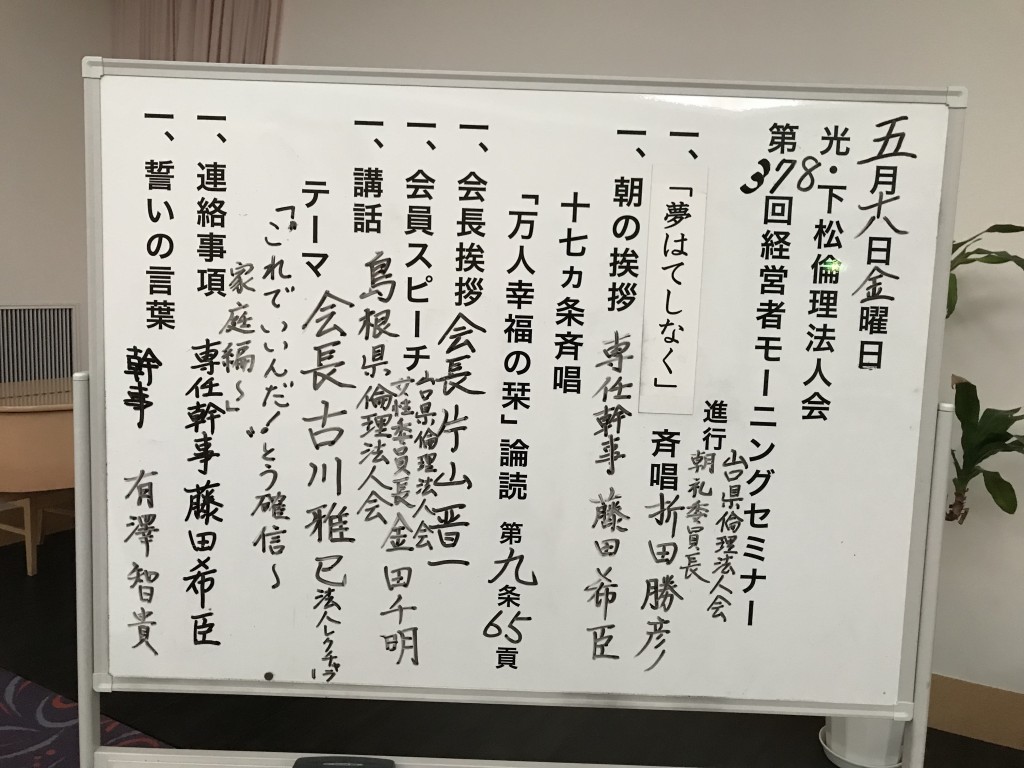 五月十八日金曜日
光・下松倫理法人会
第378回経営者モーニングセミナー
進行 山口県倫理法人会
朝礼委員長
一、「夢はてしなく」斉唱 折田勝彦
一、朝の挨拶 専任幹事 藤田希臣
十七ヵ条斉唱
「万人幸福の栞」論読 第九条65頁
一、会長挨拶 会長 片山晋一
一、会員スピーチ 山口県倫理法人会
女性委員長 金田千明
一、講話 島根県倫理法人会
テーマ 会長 古川雅巳 法人レクチャラー
「"これでいいんだ!"とう確信～
家庭編～」
一、連絡事項 専任幹事 藤田希臣
一、誓いの言葉 幹事 有澤智貴